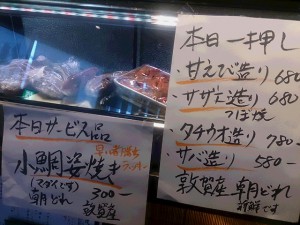 本日サービス品
早い者勝ち
小鯛姿焼き
(マダイです) 300
朝どれ 敦賀産
本日一押し
・甘えび造り 680
・サザエ造り 680
つぼ焼
・タチウオ造り 780-
・サバ造り 580-
敦賀産 朝どれ
鮮です